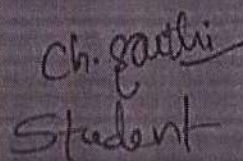 Ch. Sauthi
Student